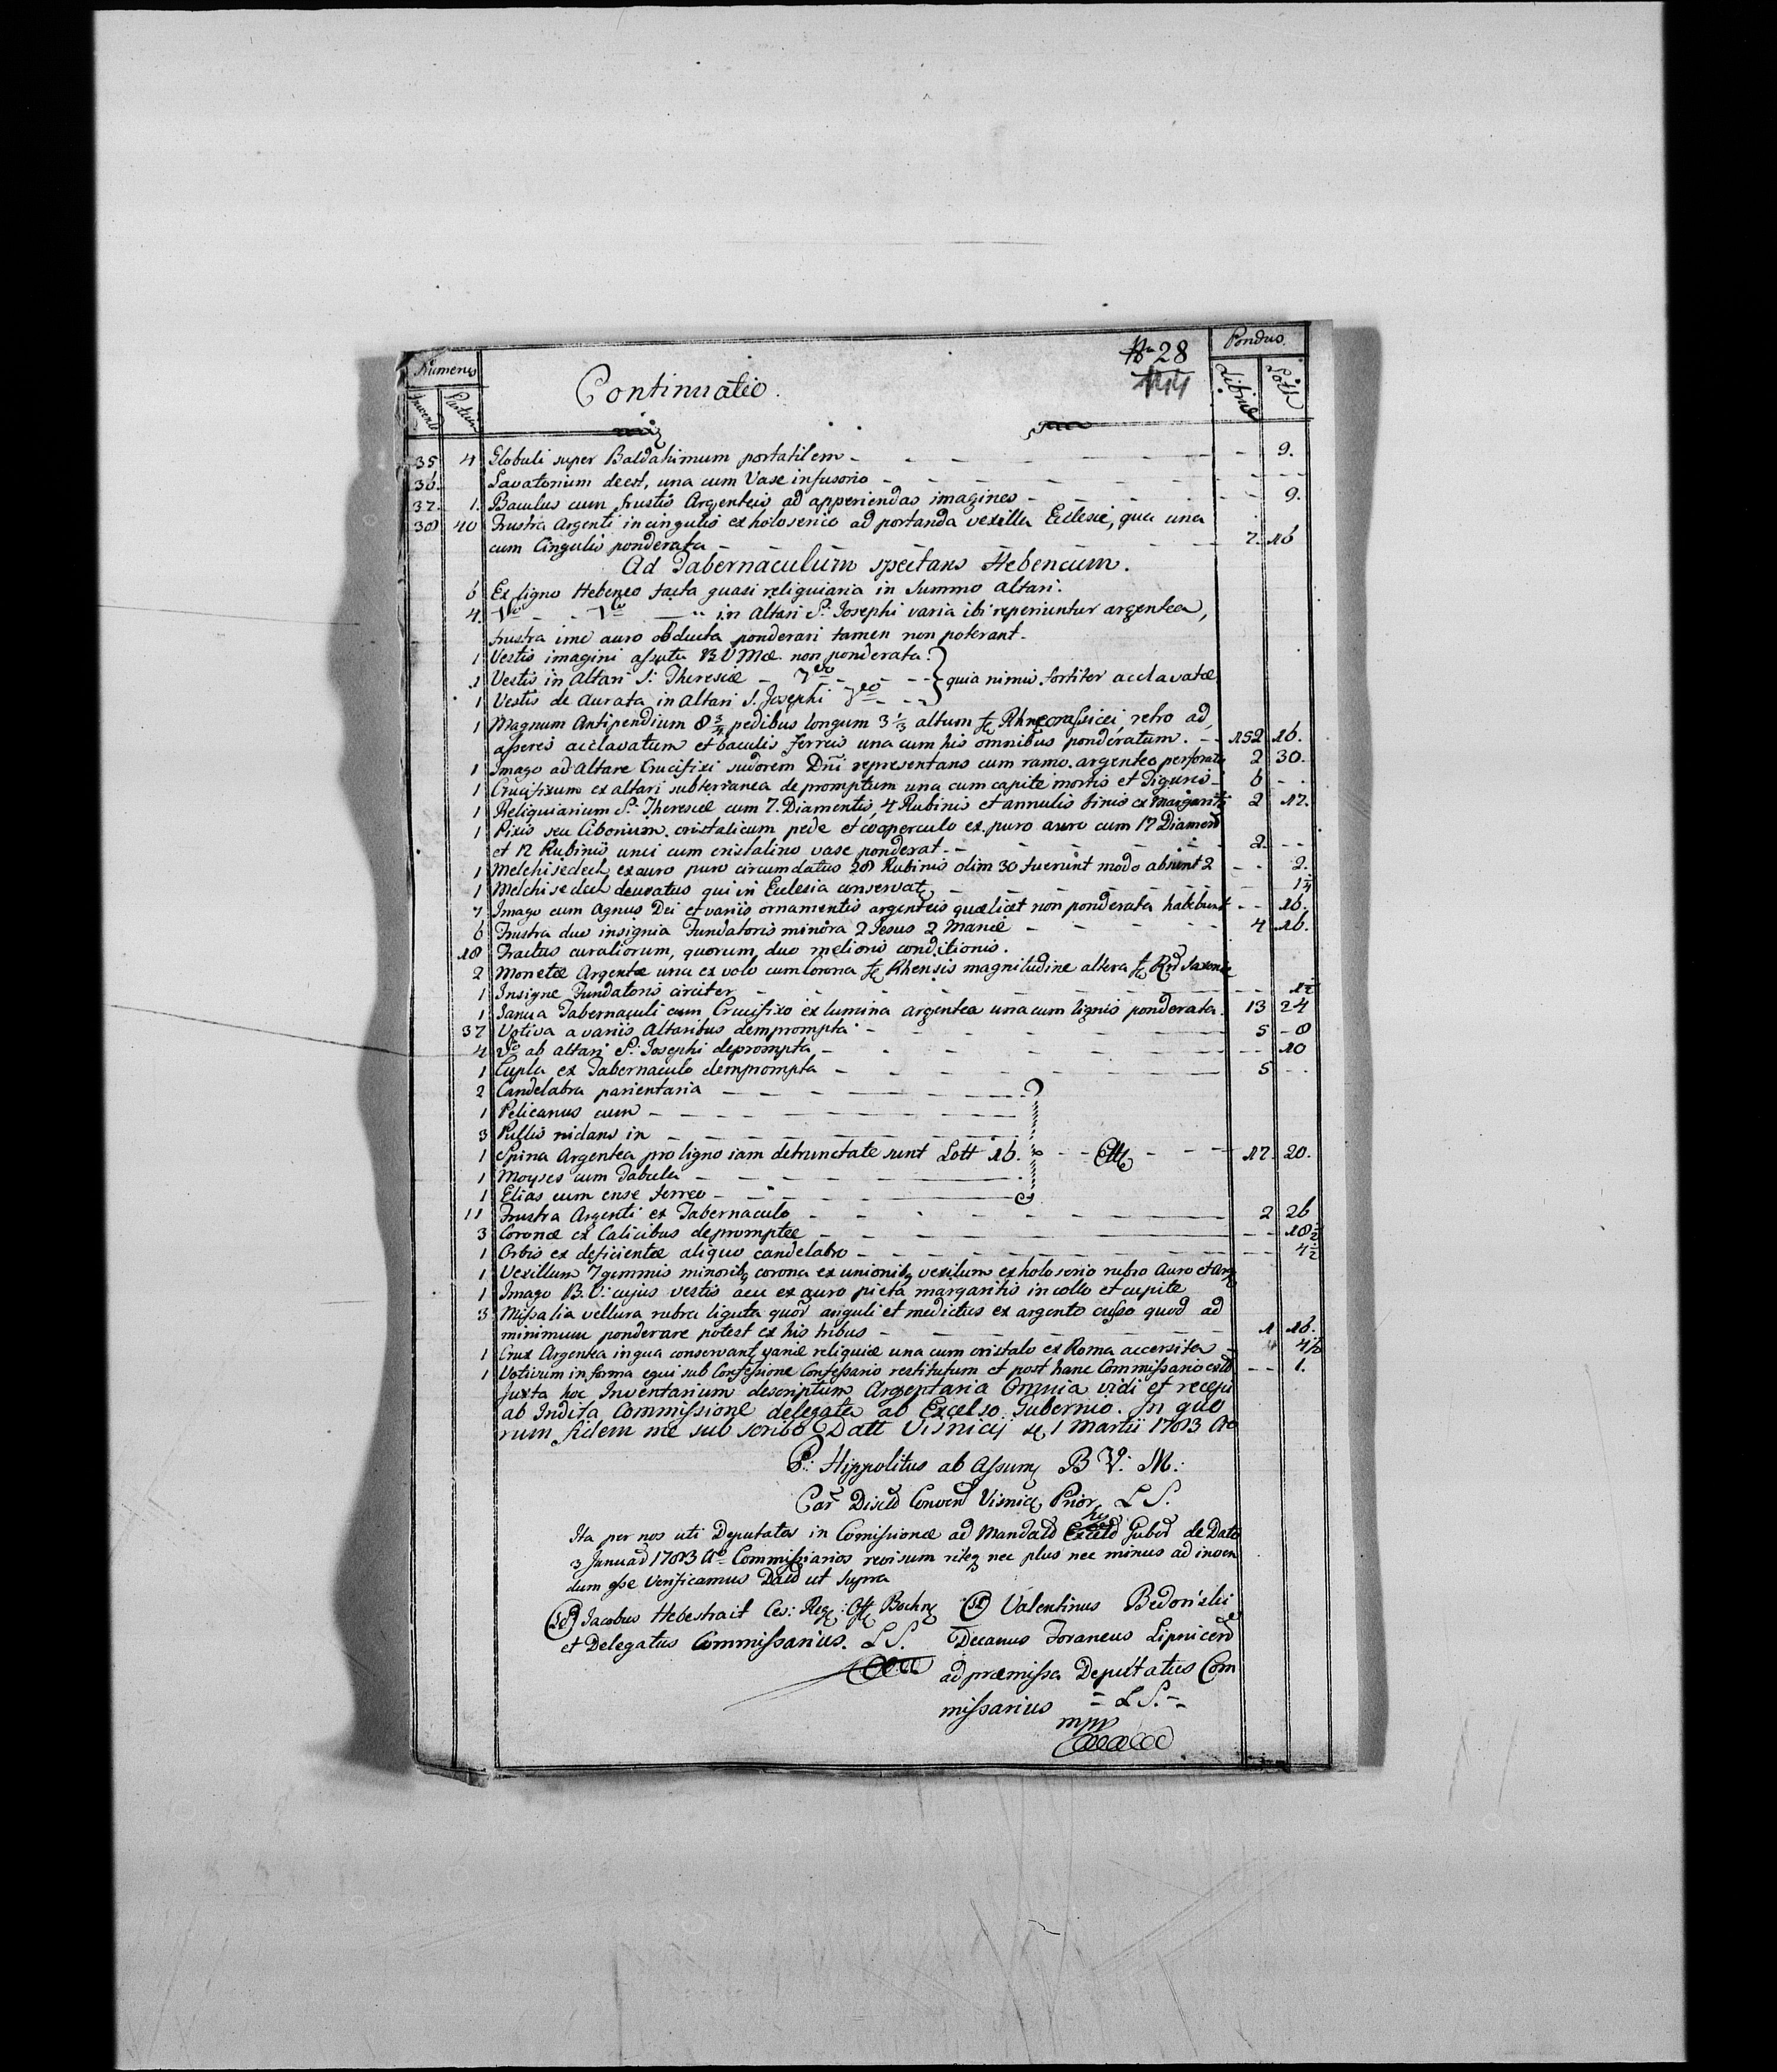 Numerus
Continuatio.
Nro 28
144
Pondus.
Invent
Partium
Libræ
Loth
35 4 Globuli super Baldahimum portatilem - - - 9.
36. Lavatorium deest, una cum Vase infusorio - - -
37. 1. Baculus cum frustis Argenteis ad apperiendas imagines - - - 9.
38 40 Frustra Argenti in cingulis ex holoserico ad portanda vexilla Eclesiæ, qua una
cum Cingulis ponderata - - - 7. 16
Ad Tabernaculum spectans Hebeneum.
6 Ex ligno Hebeneo facta quasi reliquiaria in Summo Altari.
4. in Altari S: Josephi varia ibi reperiuntur argentea,
frustra imo auro obducta ponderari tamen non poterant.
1 Vestis imagini assuta B V Mæ non ponderata.
1 Vestis in Altari S: Theresiæ - - - quia nimis fortiter acclavatæ
1 Vestis de aurata in Altari S. Josephi - -
1 Magnum Antipendium 8 3/4 pedibus longum 3 1/3 altum retro ad
asseres acclavatum et baculis ferreis una cum his omnibus ponderatum. - - 152 16.
1 Imago ad Altare Crucifixi sudorem Dñi representans cum ramo argenteo perforata 2 30.
1 Crucifixum ex altari subterranea depromptum una cum capite mortis et Figuris - 6 - .
1 Reliquiarium S: Theresiæ cum 7. Diamentis, 4 Rubinis et annulis binis ex Margaritis 2 17.
1 Pixis seu Ciborium cristalicum pede et cooperculo ex puro auro cum 17 Diamend
et 12 Rubinis unci cum cristalino vase ponderat. - - - 2. - -
1 Melchisedech ex auro puro circumdatus 28 Rubinis olim 30 fuerunt modo absunt 2 - - 2.
1 Melchisedech deuratus qui in Eclesia conservat - - - 1 1/4
7 Imago cum Agnus Dei et variis ornamentis argenteis quælicet non ponderata habebunt - - 16.
6 Frustra duo insignia Fundatoris minora 2 Jesus 2 Mariæ - - - 4 16.
18 Fractus curaliorum, quorum duo melioris conditionis.
2 Monetæ Argentæ una ex voto cum Corona Rhensis magnitudine altera Saxoniæ
1 Insigne Fundatoris circiter - - - 1 1/2
1 Janua Tabernaculi cum Crucifixo ex lumina argentea una cum lignis ponderata. 13 24
37 Votiva a variis Altaribus demprompta - - - 5 - 8
4 do ab altari S: Josephi deprompta - - - 10
1 Cupla ex Tabernaculo demprompta - - - 5 - -
2 Candelabra parientaria - - -
1 Pelicanus cum - - -
3 Pullis nidans in - - -
1 Spina Argentea pro ligno iam detrunctate sunt Lott 16. - - - 17. 20.
1 Moyses cum Tabula - - -
1 Elias cum ense ferreo - - -
11 Frustra Argenti ex Tabernaculo - - - 2 26
3 Coronæ ex Calicibus depromptæ - - - 18 1/2
1 Orbis ex deficientæ aliquo candelabro - - - 4 1/2
1 Vexillum 7 gemmis minorib corona ex unionib vexilum ex holoserio rubro Auro et Arg
1 Imago B. V: cujus vestis acu ex auro picta margaritis in collo et cupite
3 Missalia vellura rubra liguta quor anguli et medictus ex argento cusso quod ad
minimum ponderare potest ex his tribus - - - 1 16.
1 Crux Argentea in qua conservant variæ reliquiæ una cum cristalo ex Roma accersita - 4 1/2
1 Votivum in forma equi sub Confessione Confessario restitutum et post hanc Commissario exld - - 1.
Juxta hoc Inventarium descriptum Argentaria Omnia vidi et recepi
ab Indita Commissione delegata ab Excelso Gubernio. In quo
rum fidem me sub scribo Datt Visnicij d. 1 Martii 1783 Ao
P: Hippolitus ab Assum B V: M:
Car Discld Convend Visnic Prior L S.
Ita per nos uti Deputatos in Comissione ad Mandatd Excld Gubnd de Dato
3 Januad 1783 Ao Commissarios revisum riteq nec plus nec minus ad inven
dum esse Verificamus Datd ut Supra
Jacobus Hebestrait Ces: Reg: Off Bochn
et Delegatus Commissarius. L S.
Valentinus Bedoński
Decanus Foraneus Lipnicend
ad præmissa Deputatus Com
missarius = L S. -
mpp